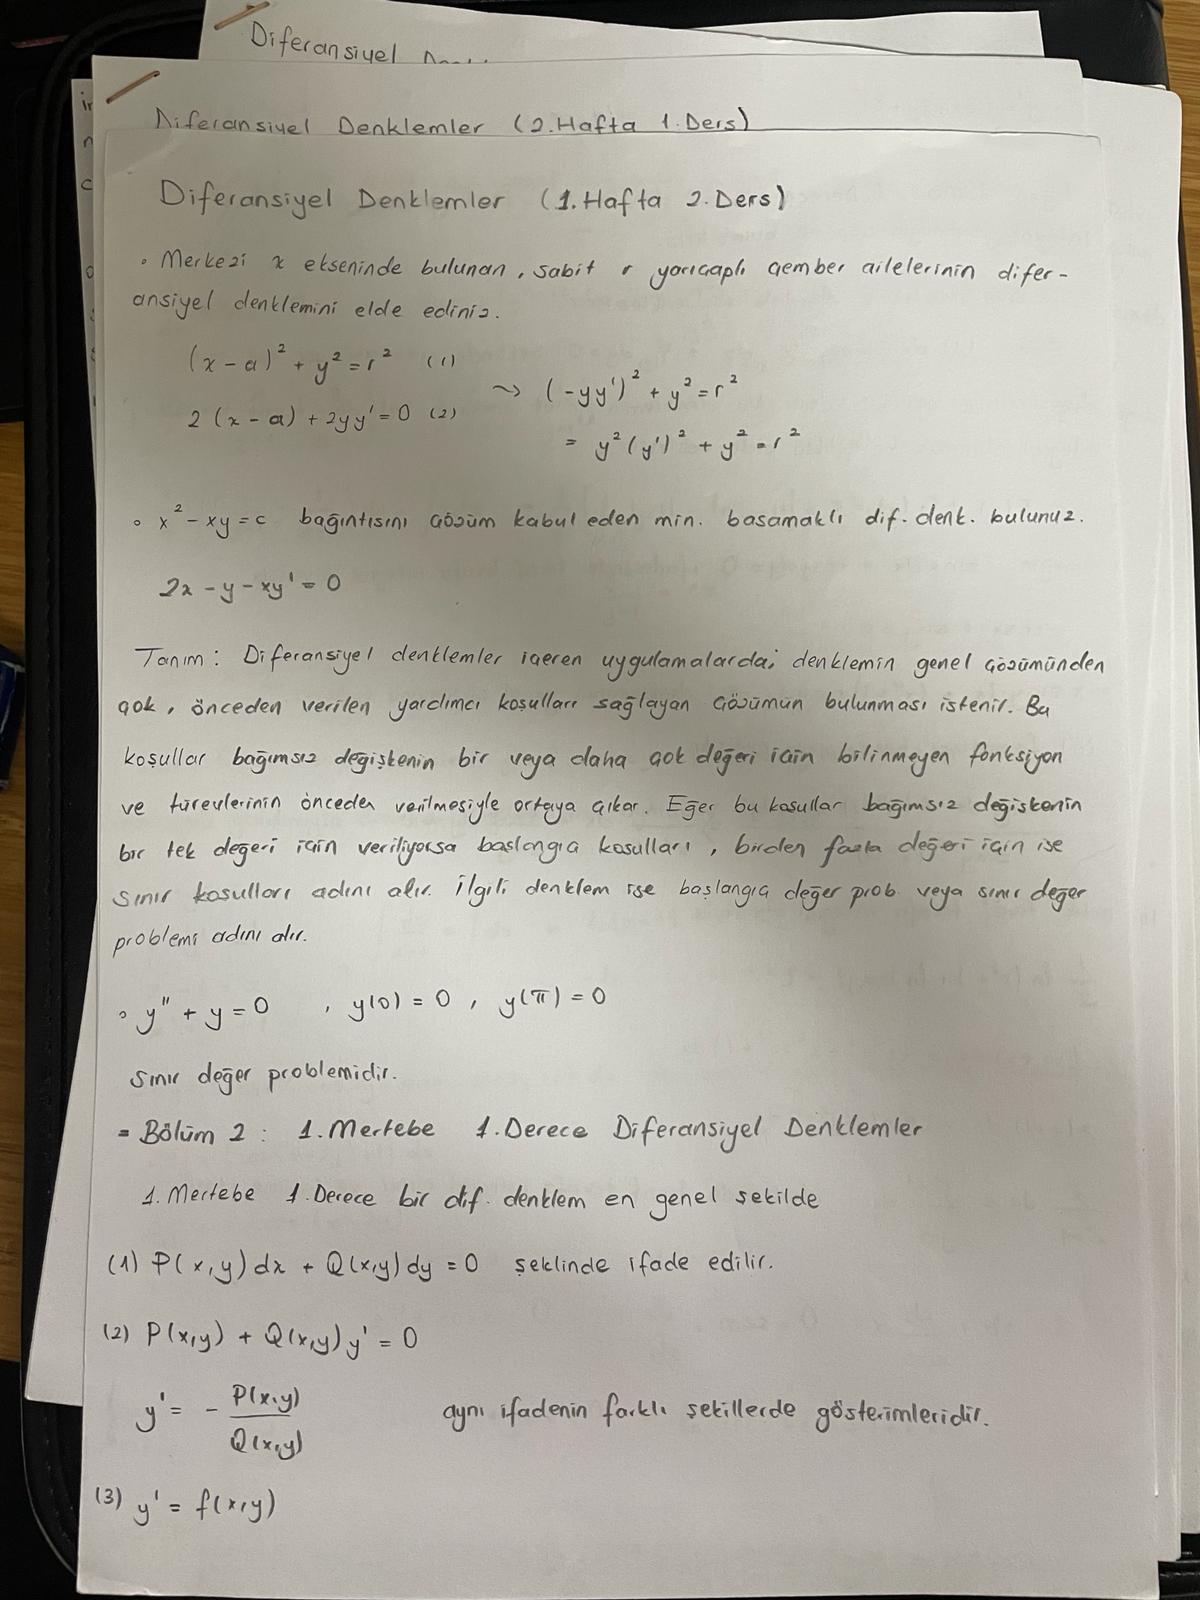 Diferansiyel
Diferansiyel Denklemler (2.Hafta 1.Ders)
Diferansiyel Denklemler (1.Hafta 2.Ders)
∘ Merkezi x ekseninde bulunan, sabit r yarıçaplı çember ailelerinin difer-
ansiyel denklemini elde ediniz.
(x-a)² + y² = r² (1)
2(x-a) + 2yy' = 0 (2)
⤳ (-yy')² + y² = r²
= y²(y')² + y² = r²
∘ x² - xy = c bağıntısını çözüm kabul eden min. basamaklı dif. denk. bulunuz.
2x - y - xy' = 0
Tanım: Diferansiyel denklemler içeren uygulamalarda; denklemin genel çözümünden
çok, önceden verilen yardımcı koşulları sağlayan çözümün bulunması istenir. Bu
koşullar bağımsız değişkenin bir veya daha çok değeri için bilinmeyen fonksiyon
ve türevlerinin önceden verilmesiyle ortaya çıkar. Eğer bu koşullar bağımsız değişkenin
bir tek değeri için veriliyorsa başlangıç koşulları, birden fazla değeri için ise
sınır koşulları adını alır. İlgili denklem ise başlangıç değer prob. veya sınır değer
problemi adını alır.
∘ y'' + y = 0 , y(0) = 0 , y(π) = 0
sınır değer problemidir.
= Bölüm 2: 1.Mertebe 1.Derece Diferansiyel Denklemler
1.Mertebe 1.Derece bir dif. denklem en genel şekilde
(1) P(x,y)dx + Q(x,y)dy = 0 şeklinde ifade edilir.
(2) P(x,y) + Q(x,y)y' = 0
y' = - P(x,y) / Q(x,y) aynı ifadenin farklı şekillerde gösterimleridir.
(3) y' = f(x,y)